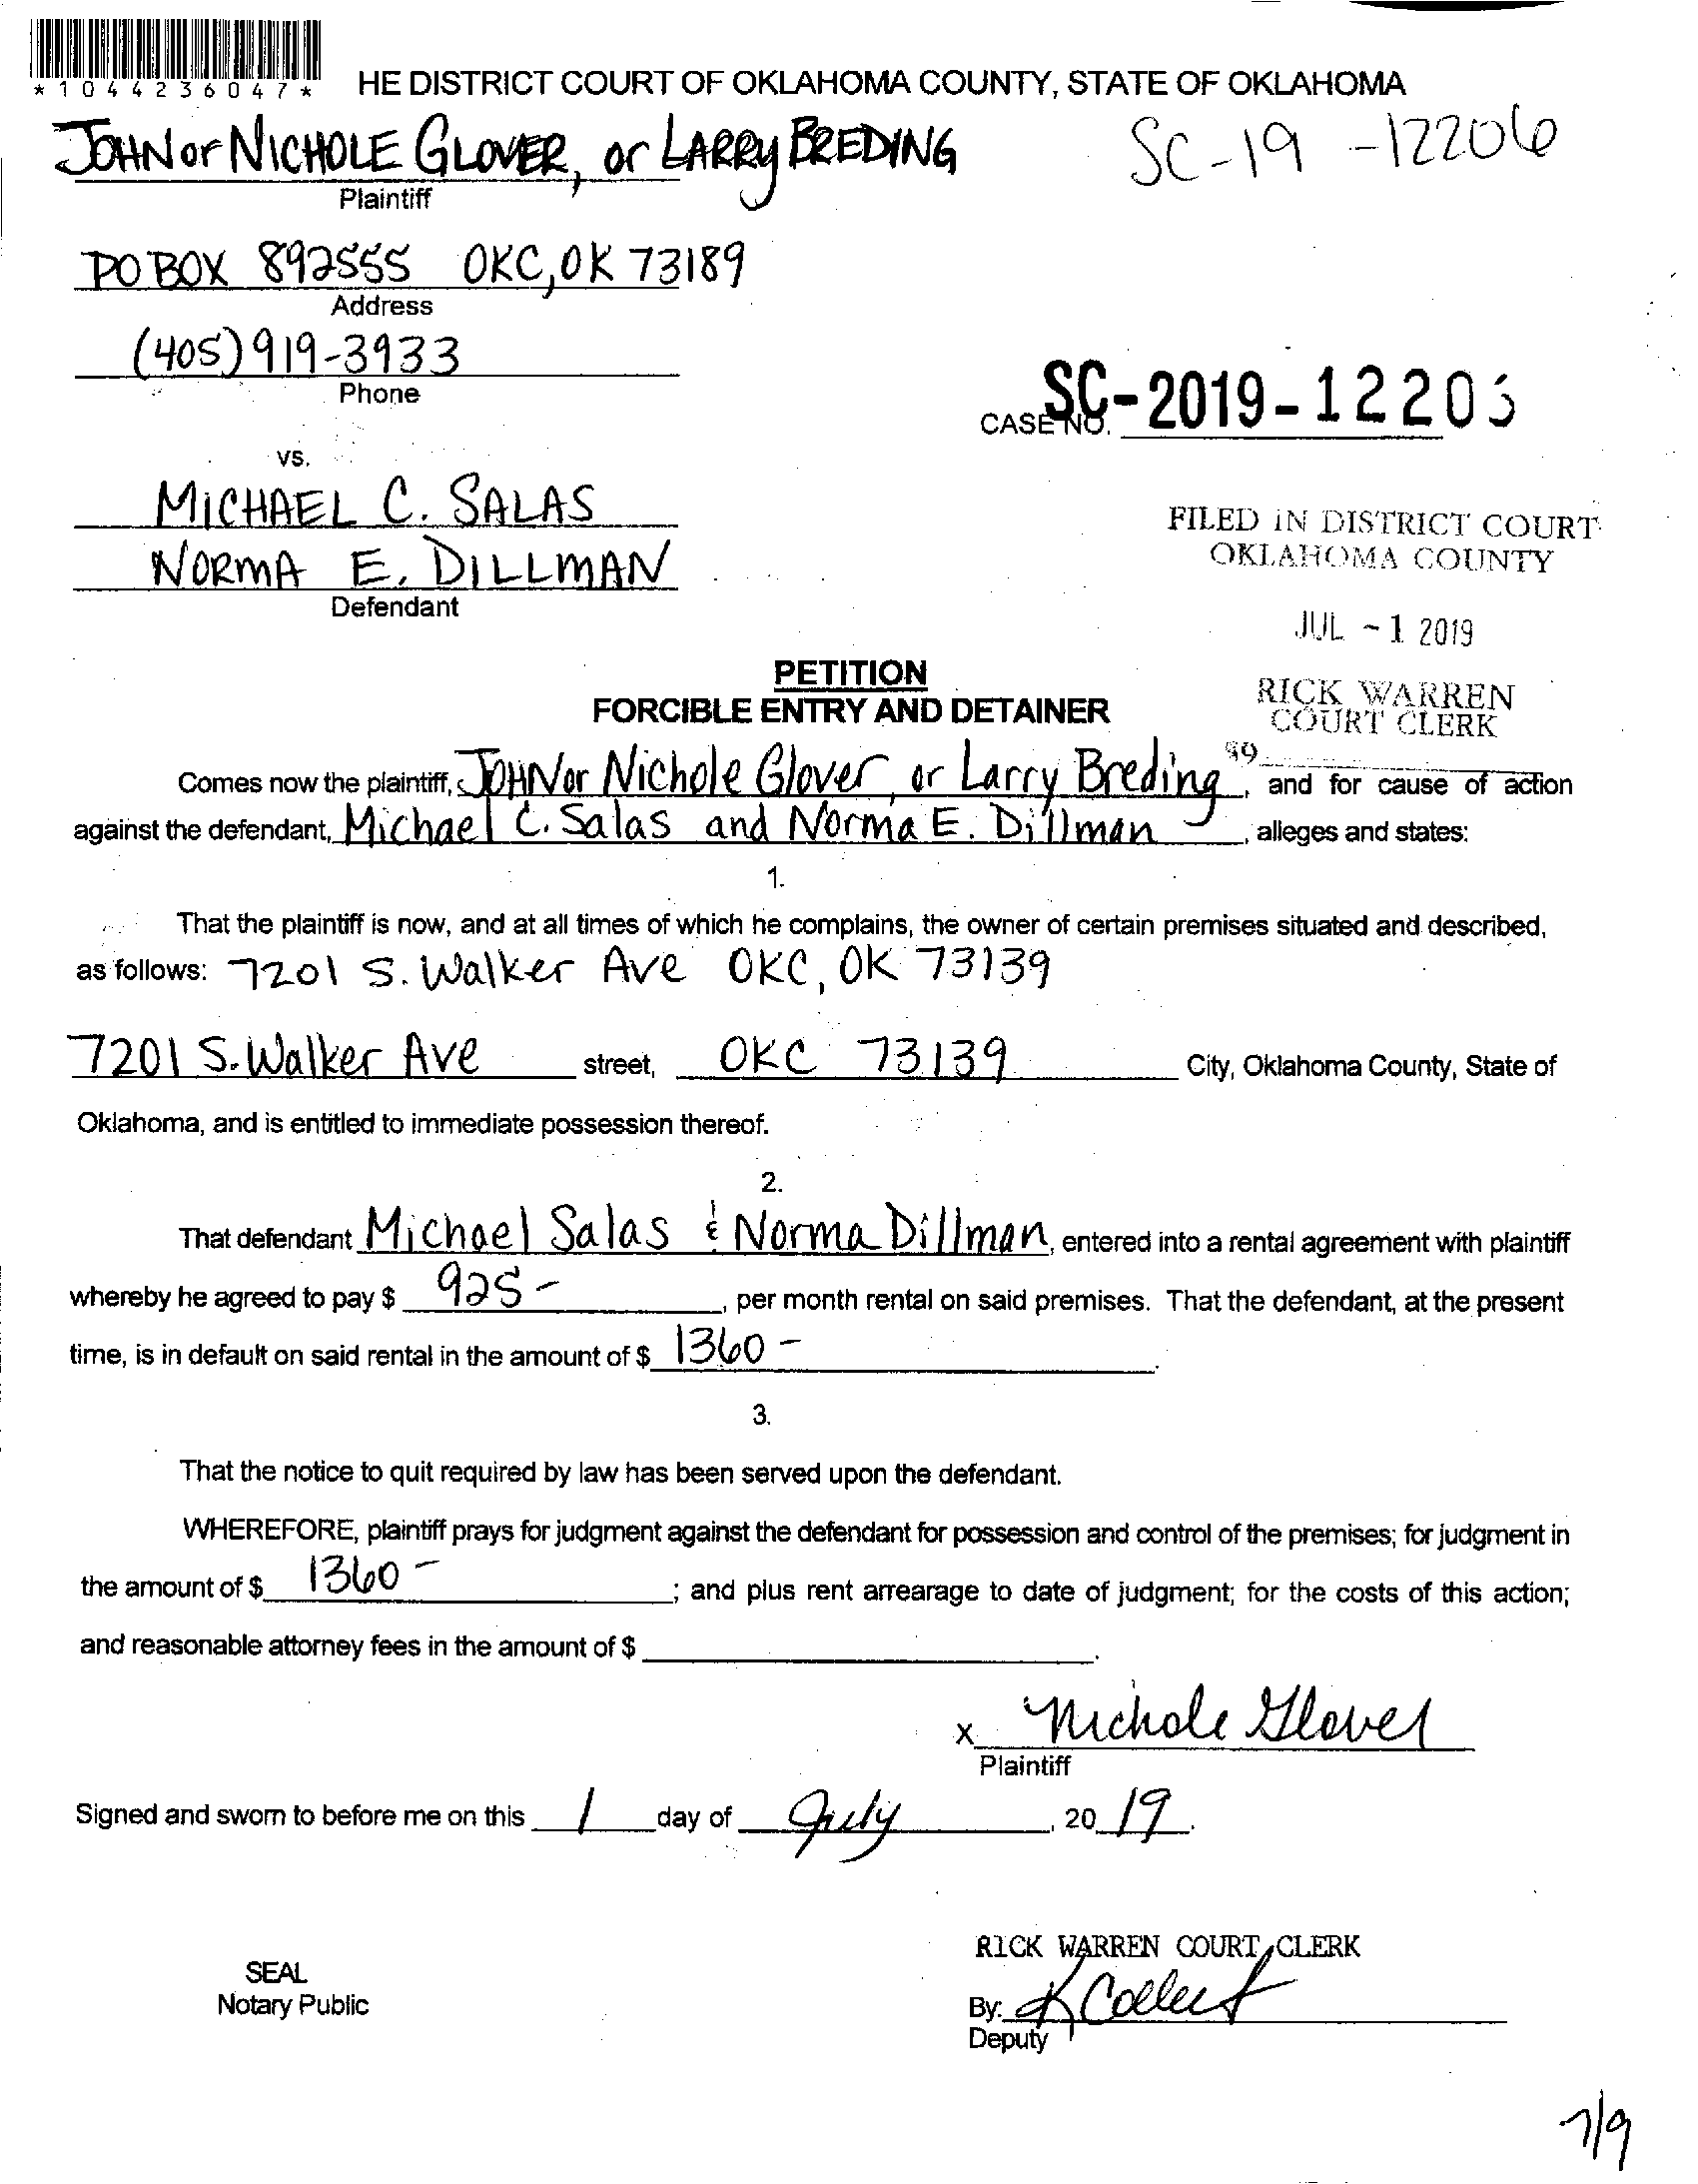 *1044236047*
HE DISTRICT COURT OF OKLAHOMA COUNTY, STATE OF OKLAHOMA
JOHN or NICHOLE GLOVER, or LARRY BREDING
SC-19-12206
Plaintiff
PO BOX 892555 OKC, OK 73189
Address
(405) 919-3933
Phone
CASE NO. SC-2019-12206
vs.
MICHAEL C. SALAS
NORMA E. DILLMAN
Defendant
FILED IN DISTRICT COURT
OKLAHOMA COUNTY
JUL -1 2019
RICK WARREN
COURT CLERK
PETITION
FORCIBLE ENTRY AND DETAINER
Comes now the plaintiff, JOHN or Nichole Glover, or Larry Breding, and for cause of action
against the defendant, Michael C. Salas and Norma E. Dillman, alleges and states:
1.
That the plaintiff is now, and at all times of which he complains, the owner of certain premises situated and described,
as follows: 7201 S. Walker Ave OKC, OK 73139
7201 S. Walker Ave street, OKC 73139 City, Oklahoma County, State of
Oklahoma, and is entitled to immediate possession thereof.
2.
That defendant Michael Salas & Norma Dillman, entered into a rental agreement with plaintiff
whereby he agreed to pay $ 925-, per month rental on said premises. That the defendant, at the present
time, is in default on said rental in the amount of $ 1360-.
3.
That the notice to quit required by law has been served upon the defendant.
WHEREFORE, plaintiff prays for judgment against the defendant for possession and control of the premises; for judgment in
the amount of $ 1360-; and plus rent arrearage to date of judgment; for the costs of this action;
and reasonable attorney fees in the amount of $ .
x Nichole Glover
Plaintiff
Signed and sworn to before me on this 1 day of July, 2019.
SEAL
Notary Public
RICK WARREN COURT CLERK
By:
Deputy
7/9